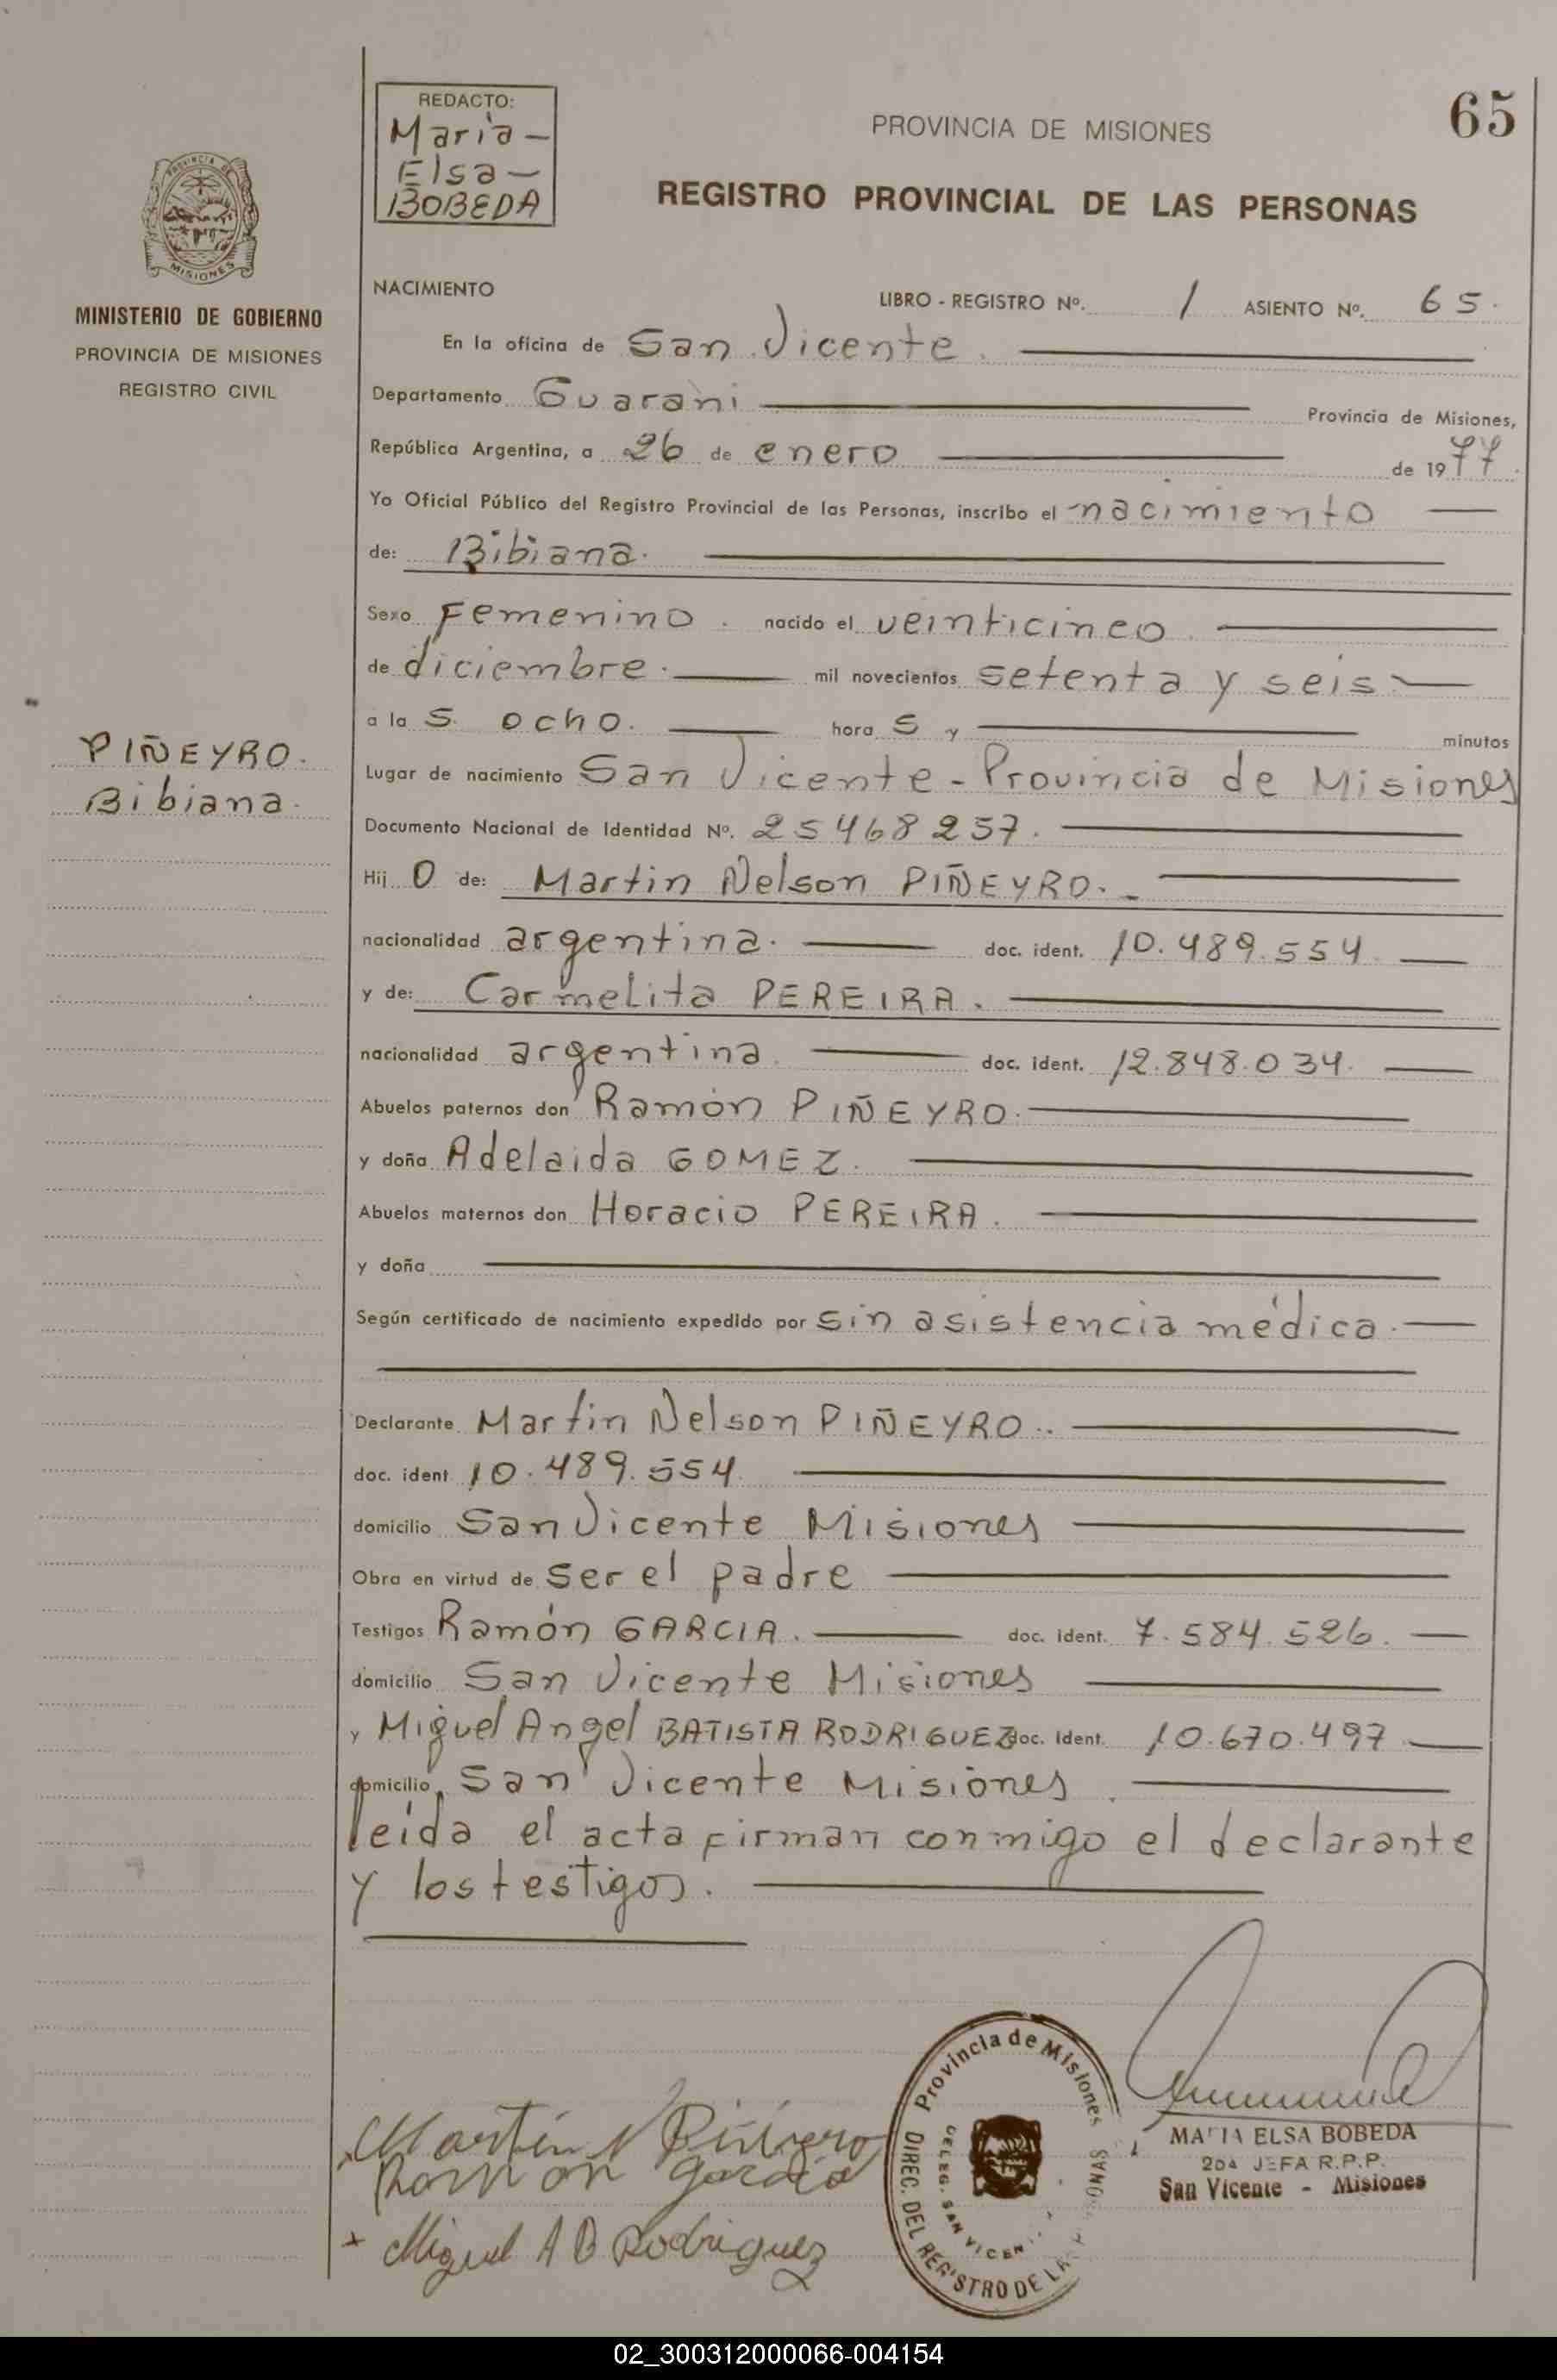 65
REDACTO:
Maria-
Elsa-
BOBEDA
PROVINCIA DE MISIONES
REGISTRO PROVINCIAL DE LAS PERSONAS
PROVINCIA DE
MISIONES
MINISTERIO DE GOBIERNO
PROVINCIA DE MISIONES
REGISTRO CIVIL
NACIMIENTO
LIBRO - REGISTRO Nº. 1 ASIENTO Nº. 65.
En la oficina de San Vicente.
Departamento Guarani Provincia de Misiones,
República Argentina, a 26 de enero de 1977.
Yo Oficial Público del Registro Provincial de las Personas, inscribo el nacimiento
de: Bibiana.
Sexo Femenino. nacido el veinticinco.
de diciembre. mil novecientos setenta y seis.
a la s. ocho. hora s y minutos
PIÑEYRO.
Bibiana.
Lugar de nacimiento San Vicente - Provincia de Misiones
Documento Nacional de Identidad Nº. 25468257.
Hij O de: Martin Nelson PIÑEYRO.-
nacionalidad argentina. doc. ident. 10.489.554.
y de: Carmelita PEREIRA.
nacionalidad argentina. doc. ident. 12.848.034.
Abuelos paternos don Ramón PIÑEYRO.
y doña Adelaida GOMEZ.
Abuelos maternos don Horacio PEREIRA.
y doña
Según certificado de nacimiento expedido por sin asistencia médica.
Declarante Martin Nelson PIÑEYRO..
doc. ident 10.489.554.
domicilio San Vicente Misiones
Obra en virtud de ser el padre
Testigos Ramón GARCIA. doc. ident. 7.584.526.
domicilio San Vicente Misiones
y Miguel Angel BATISTA RODRIGUEZ doc. ident. 10.670.497
domicilio San Vicente Misiones.
leida el acta firman conmigo el declarante
y los testigos.
Martín N Piñeyro
Ramon Garcia
Miguel A B Rodriguez
Provincia de Misiones
DIREC. DEL REGISTRO DE LA
DELEG. SAN VICEN
MARIA ELSA BOBEDA
2da JEFA R.P.P.
San Vicente - Misiones
02_300312000066-004154